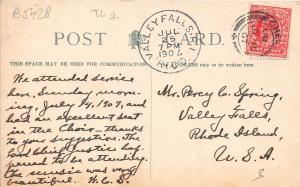 B5428
TL 2-
POST CARD.
VALLEY FALLS, R.I.
JUL
25
7 PM
THIS SPACE MAY BE USED FOR COMMUNICATION
We attended service
here, Sunday morn-
ing, July 14, 1907, and
had an excellent seat
in the Choir, thanks
to your suggestion. The
Lord Chief Justice hap-
pened to be attending.
The music was very
beautiful. H.C.S.
Mr. Percy C. Spring,
Valley Falls,
Rhode Island,
U.S.A.